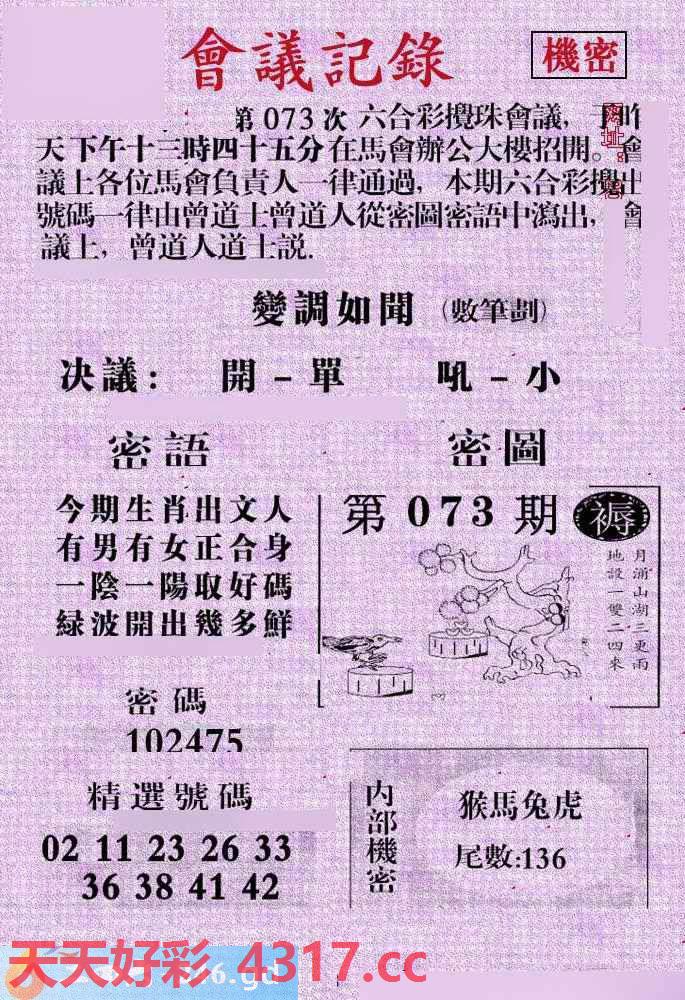 會議記錄
機密
第073次六合彩攪珠會議，于昨
天下午十三時四十五分在馬會辦公大樓招開。會
議上各位馬會負責人一律通過，本期六合彩攪出
號碼一律由曾道士曾道人從密圖密語中瀉出，會
議上，曾道人道士説.
變調如聞（數筆劃）
决議： 開－單 吼－小
密語
今期生肖出文人
有男有女正合身
一陰一陽取好碼
緑波開出幾多鮮
密圖
第073期 褥
月涌山湖三更雨
地設一雙二四來
密碼
102475
精選號碼
02 11 23 26 33
36 38 41 42
内部機密
猴馬兔虎
尾數:136
天天好彩 4317.cc